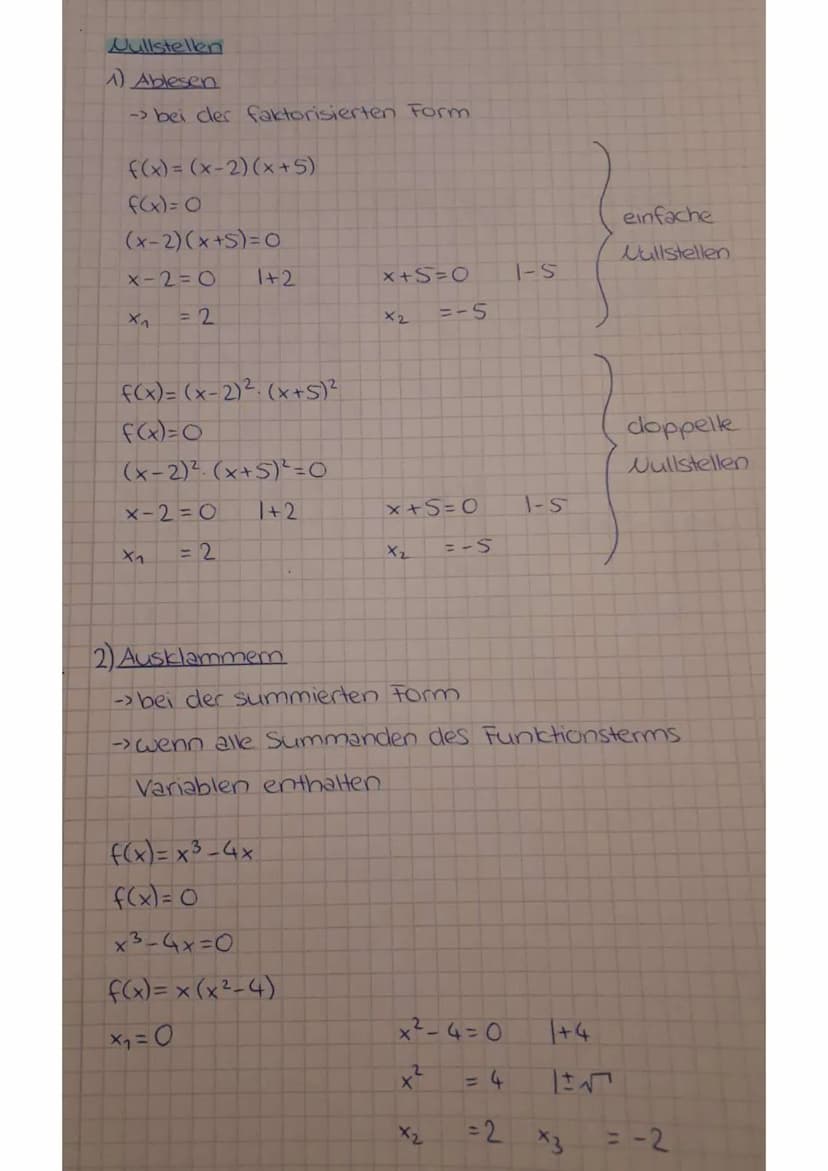 Nullstellen
1) Ablesen
-> bei der faktorisierten Form
f(x) = (x-2)(x+5)
f(x) = 0
(x-2)(x+5)=0
x-2=0 |+2 x+5=0 |-5
x₁ = 2 x₂ =-5
einfache
Nullstellen
f(x) = (x-2)²·(x+5)²
f(x)=0
(x-2)²·(x+5)²=0
x-2=0 |+2 x+5=0 |-5
x₁ = 2 x₂ =-5
doppelte
Nullstellen
2) Ausklammern
-> bei der summierten Form
-> wenn alle Summanden des Funktionsterms
Variablen enthalten
f(x)= x³-4x
f(x)= 0
x³-4x=0
f(x)= x(x²-4)
x₁=0 x²-4=0 |+4
x² = 4 |±√
x₂ =2 x₃ = -2